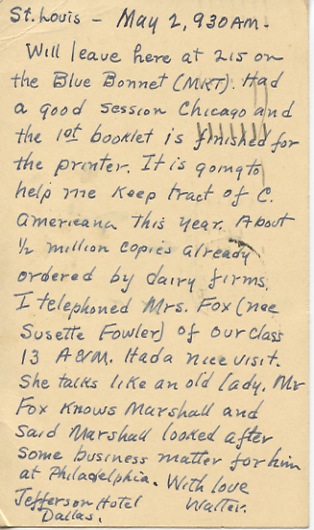 St. Louis - May 2, 930 AM.
Will leave here at 215 on
the Blue Bonnet (MKT). Had
a good session Chicago and
the 1st booklet is finished for
the printer. It is going to
help me keep tract of C.
Americana this year. About
½ million copies already
ordered by dairy firms.
I telephoned Mrs. Fox (nee
Susette Fowler) of our class
13 A&M. Had a nice visit.
She talks like an old lady. Mr
Fox knows Marshall and
said Marshall looked after
some business matter for him
at Philadelphia. With love
Jefferson Hotel Walter.
Dallas.